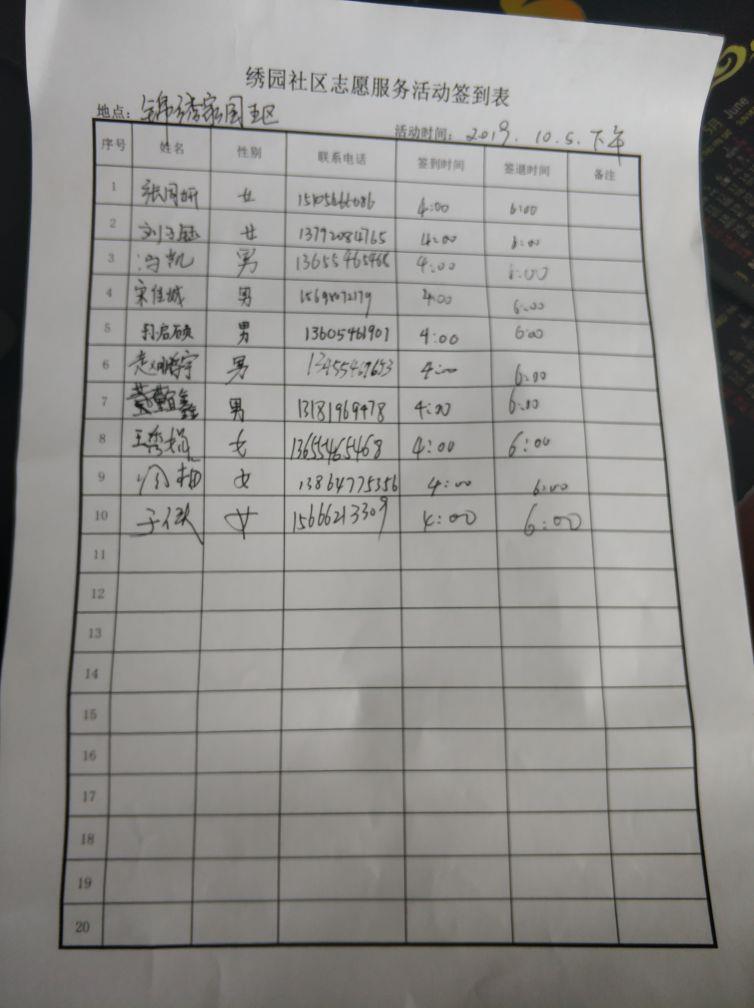 绣园社区志愿服务活动签到表
地点：锦绣家园五区 活动时间：2019.10.5.下午
序号 姓名 性别 联系电话 签到时间 签退时间 备注
1 女 4:00 6:00
2 女 13792084765 4:00 6:00
3 冯凯 男 13655465468 4:00 6:00
4 宋佳城 男 4:00 6:00
5 男 13605461901 4:00 6:00
6 赵鹏宇 男 4:00 6:00
7 男 13181969478 4:00 6:00
8 王秀娟 女 13655465468 4:00 6:00
9 女 13864775356 4:00 6:00
10 女 15666213309 4:00 6:00
11
12
13
14
15
16
17
18
19
20